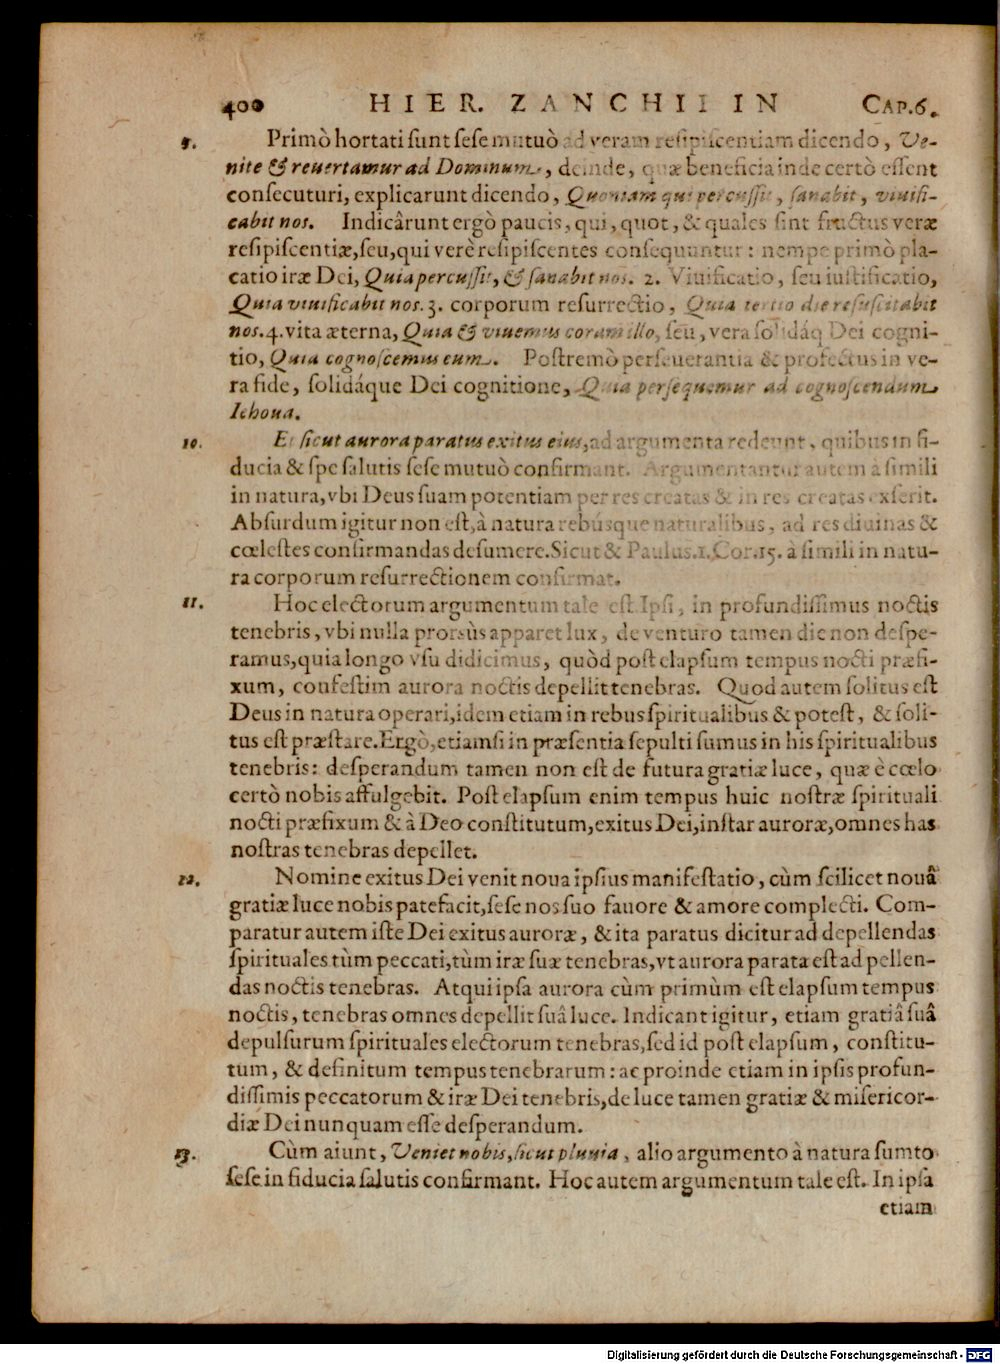 400 HIER. ZANCHII IN CAP.6.
9. Primò hortati ſunt ſeſe mutuò ad veram reſipiſcentiam dicendo, Ve-
nite & reuertamur ad Dominum, deinde, quæ beneficia inde certò eſſent
conſecuturi, explicarunt dicendo, Quoniam qui percuſſit, ſanabit, viuifi-
cabit nos. Indicârunt ergò paucis, qui, quot, & quales ſint fructus veræ
reſipiſcentiæ, ſeu, qui verè reſipiſcentes conſequuntur: nempe primò pla-
catio iræ Dei, Quia percuſſit, & ſanabit nos. 2. Viuificatio, ſeu iuſtificatio,
Quia viuificabit nos. 3. corporum reſurrectio, Quia tertio die reſuſcitabit
nos. 4. vita æterna, Quia & viuemus coram illo, ſeu, vera ſolidáq Dei cogni-
tio, Quia cognoſcemus eum. Poſtremò perſeuerantia & profectus in ve-
ra fide, ſolidáque Dei cognitione, Quia perſequemur ad cognoſcendum
Iehoua.
10. Et ſicut aurora paratus exitus eius, ad argumenta redeunt, quibus in fi-
ducia & ſpe ſalutis ſeſe mutuò confirmant. Argumentantur autem à ſimili
in natura, vbi Deus ſuam potentiam per res creatas & in res creatas exſerit.
Abſurdum igitur non eſt, à natura rebúsque naturalibus, ad res diuinas &
cœleſtes confirmandas deſumere. Sicut & Paulus. 1. Cor. 15. à ſimili in natu-
ra corporum reſurrectionem confirmat.
11. Hoc electorum argumentum tale eſt. Ipſi, in profundiſſimus noctis
tenebris, vbi nulla prorsùs apparet lux, de venturo tamen die non deſpe-
ramus, quia longo vſu didicimus, quòd poſt elapſum tempus nocti præfi-
xum, confeſtim aurora noctis depellit tenebras. Quod autem ſolitus eſt
Deus in natura operari, idem etiam in rebus ſpiritualibus & poteſt, & ſoli-
tus eſt præſtare. Ergò, etiamſi in præſentia ſepulti ſumus in his ſpiritualibus
tenebris: deſperandum tamen non eſt de futura gratiæ luce, quæ è cœlo
certò nobis affulgebit. Poſt elapſum enim tempus huic noſtræ ſpirituali
nocti præfixum & à Deo conſtitutum, exitus Dei, inſtar auroræ, omnes has
noſtras tenebras depellet.
12. Nomine exitus Dei venit noua ipſius manifeſtatio, cùm ſcilicet nouâ
gratiæ luce nobis patefacit, ſeſe nos ſuo fauore & amore complecti. Com-
paratur autem iſte Dei exitus auroræ, & ita paratus dicitur ad depellendas
ſpirituales tùm peccati, tùm iræ ſuæ tenebras, vt aurora parata eſt ad pellen-
das noctis tenebras. Atqui ipſa aurora cùm primùm eſt elapſum tempus
noctis, tenebras omnes depellit ſuâ luce. Indicant igitur, etiam gratiâ ſuâ
depulſurum ſpirituales electorum tenebras, ſed id poſt elapſum, conſtitu-
tum, & definitum tempus tenebrarum: ac proinde etiam in ipſis profun-
diſſimis peccatorum & iræ Dei tenebris, de luce tamen gratiæ & miſericor-
diæ Dei nunquam eſſe deſperandum.
13. Cùm aiunt, Veniet nobis, ſicut pluuia, alio argumento à natura ſumto
ſeſe in fiducia ſalutis confirmant. Hoc autem argumentum tale eſt. In ipſa
etiam
Digitalisierung gefördert durch die Deutsche Forschungsgemeinschaft - DFG